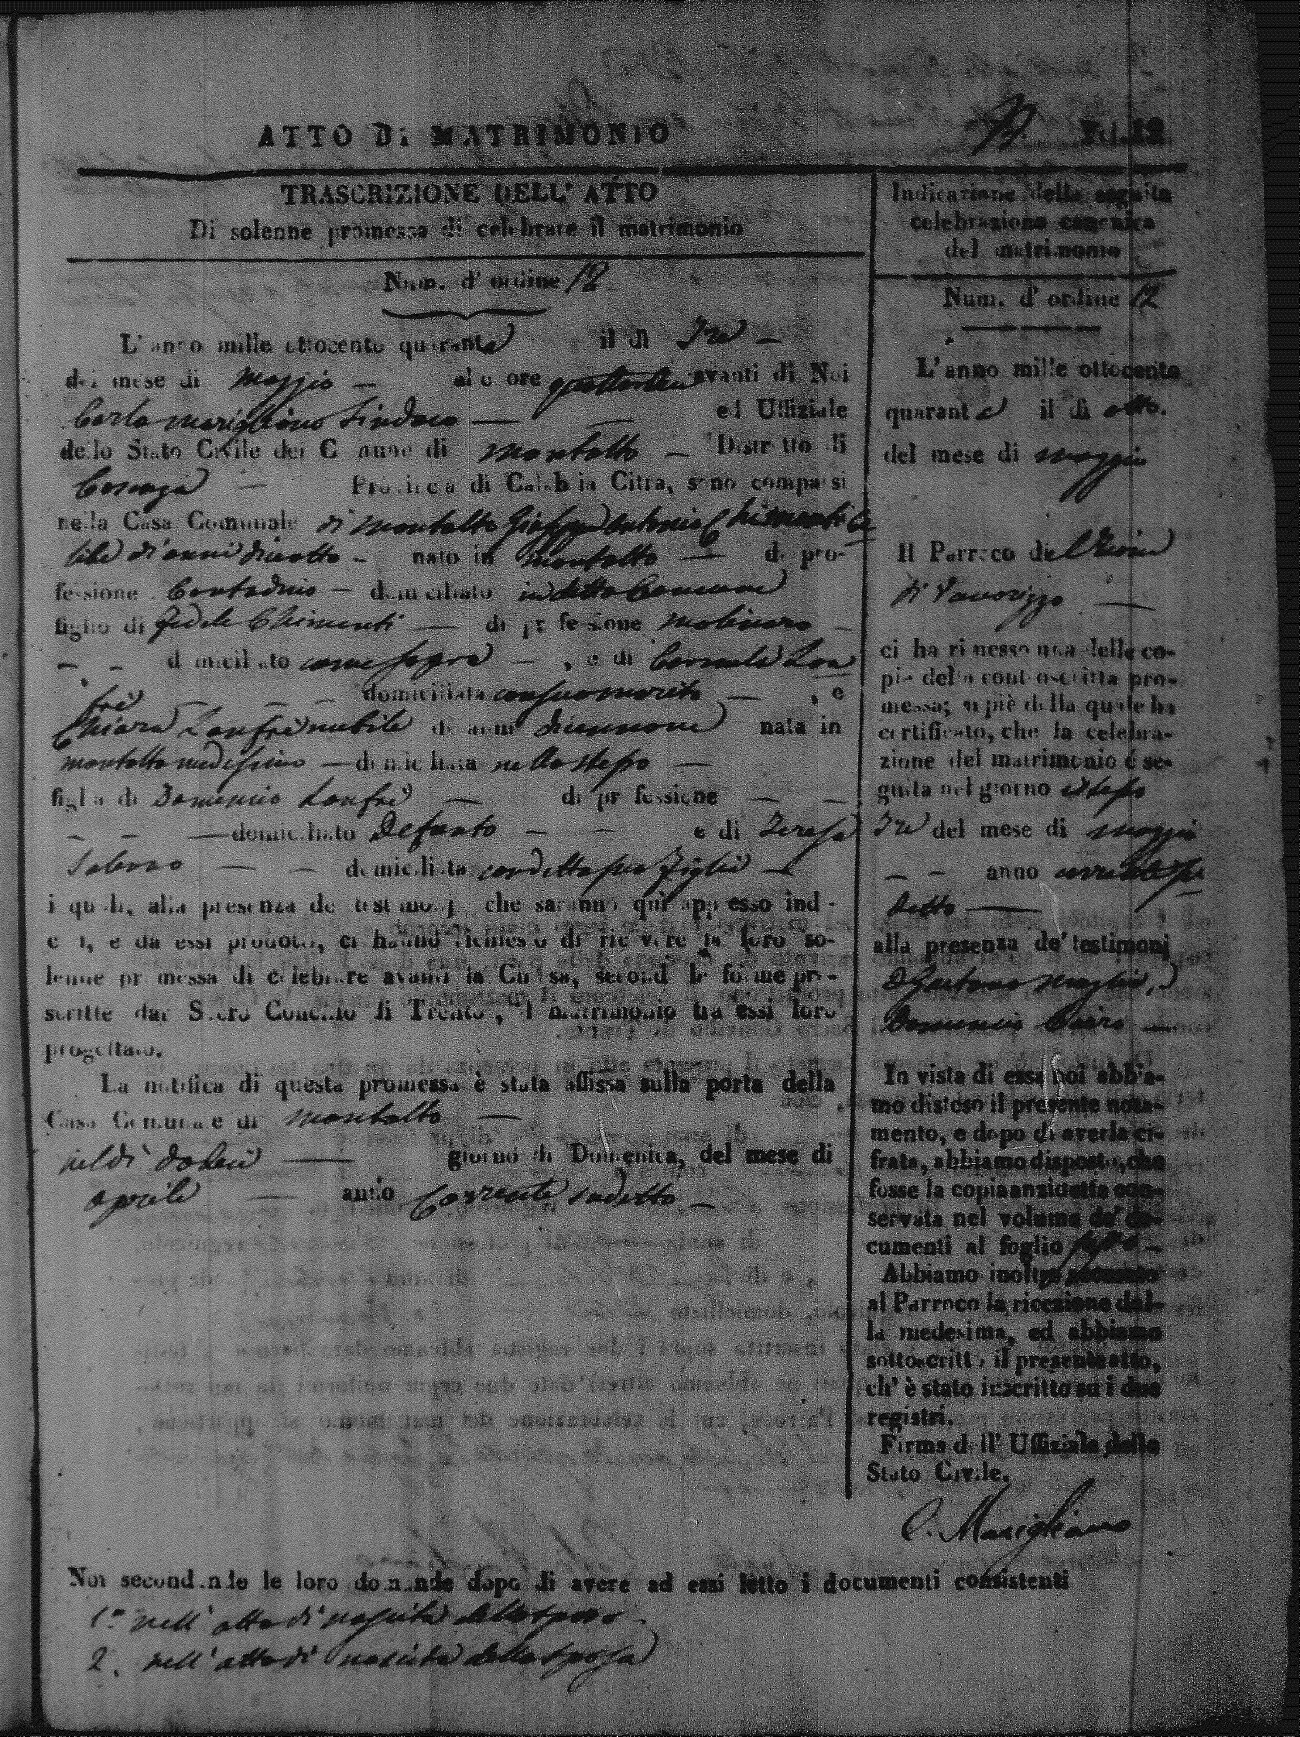 ATTO DI MATRIMONIO
Fol. 12
TRASCRIZIONE DELL' ATTO
Di solenne promessa di celebrare il matrimonio
Num. d' ordine 12
L' anno mille ottocento quaranta il dì Tre
del mese di Maggio alle ore avanti di Noi
Carlo Marigliano Sindaco ed Uffiziale
dello Stato Civile del Comune di Montalto Distretto di
Cosenza Provincia di Calabria Citra, sono comparsi
nella Casa Comunale di Montalto Giuseppe Antonio Chimenti Ce
libe di anni diciotto nato in Montalto di pro-
fessione Contadino domiciliato in detto Comune
figlio di Fedele Chimenti di professione Molinaro
domiciliato come sopra , e di Carmela Lan
frè domiciliata con suo marito , e
Chiara Lanfrè nubile di anni diecinnove nata in
Montalto medesimo domiciliata nello stesso
figlia di Domenico Lanfrè di professione
domiciliato Defunto e di Teresa
Salerno domiciliata con detta sua figlia
i quali, alla presenza de' testimonj che saranno qui appresso indi-
cati, e da essi prodotti, ci hanno richiesto di ricevere la loro so-
lenne promessa di celebrare avanti la Chiesa, secondo le forme pre-
scritte dal Sacro Concilio di Trento, il matrimonio tra essi loro
progettato.
La notifica di questa promessa è stata affissa sulla porta della
Casa Comunale di Montalto
nel dì dodeci giorno di Domenica, del mese di
aprile anno Corrente sudetto
Indicazione della seguita
celebrazione canonica
del matrimonio
Num. d' ordine 12
L' anno mille ottocento
quaranta il dì otto.
del mese di maggio
Il Parroco di
di Vaccarizzo
ci ha rimesso una delle co-
pie della controscritta pro-
messa; a piè della quale ha
certificato, che la celebra-
zione del matrimonio è se-
guita nel giorno
Tre del mese di maggio
anno
detto
alla presenza de' testimonj
D. Gaetano
Domenico
In vista di essa noi abbia-
mo disteso il presente nota-
mento, e dopo di averla ci-
frata, abbiamo disposto, che
fosse la copia anzidetta con-
servata nel volume de' do-
cumenti al foglio
Abbiamo inoltre accusato
al Parroco la ricezione del-
la medesima, ed abbiamo
sottoscritto il presente atto,
ch' è stato inscritto su i due
registri.
Firma dell' Uffiziale dello
Stato Civile.
C. Marigliano
Noi secondando le loro domande dopo di avere ad essi letto i documenti consistenti
1.° nell' atto di nascita dello sposo
2. nell' atto di nascita della sposa